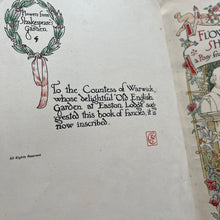 Flowers from
Shakespeare's
Garden
To the Countess of Warwick,
whose delightful Old English
Garden at Easton Lodge sug-
gested this book of fancies, it is
now inscribed.
All Rights Reserved
FLOW
SH
a Posy